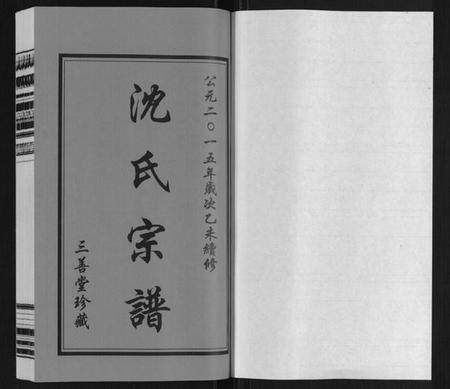 公元二〇一五年歲次乙未續修
沈氏宗譜
三善堂珍藏